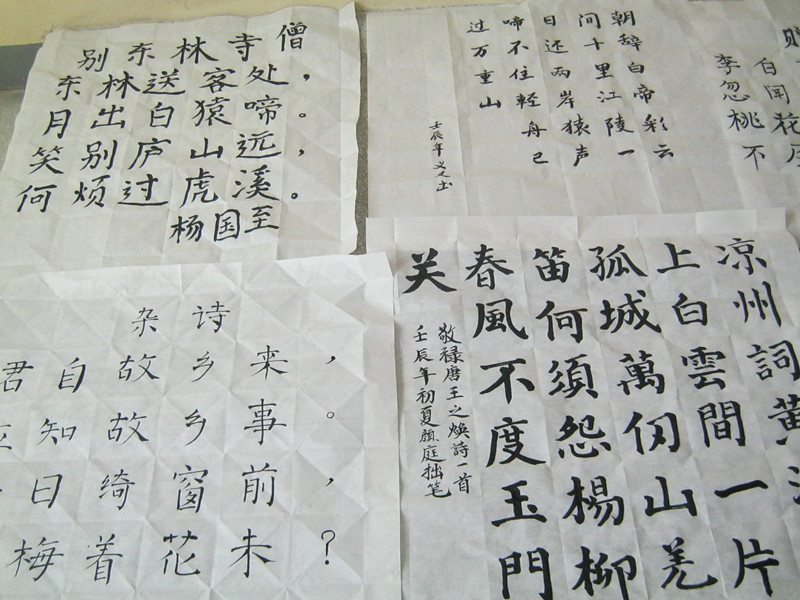 别东林寺僧
东林送客处，
月出白猿啼。
笑别庐山远，
何烦过虎溪。
杨国至
朝辞白帝彩云
间十里江陵一
日还两岸猿声
啼不住輕舟已
过万重山
壬辰年
李白
忽闻
桃花
不
杂诗
君自故乡来，
知故乡事。
日绮窗前，
梅着花未？
凉州詞黄
上白雲間一片
孤城萬仞山羌
笛何須怨楊柳
春風不度玉門
关
敬禄唐王之焕詩一首
壬辰年初夏顔庭拙笔